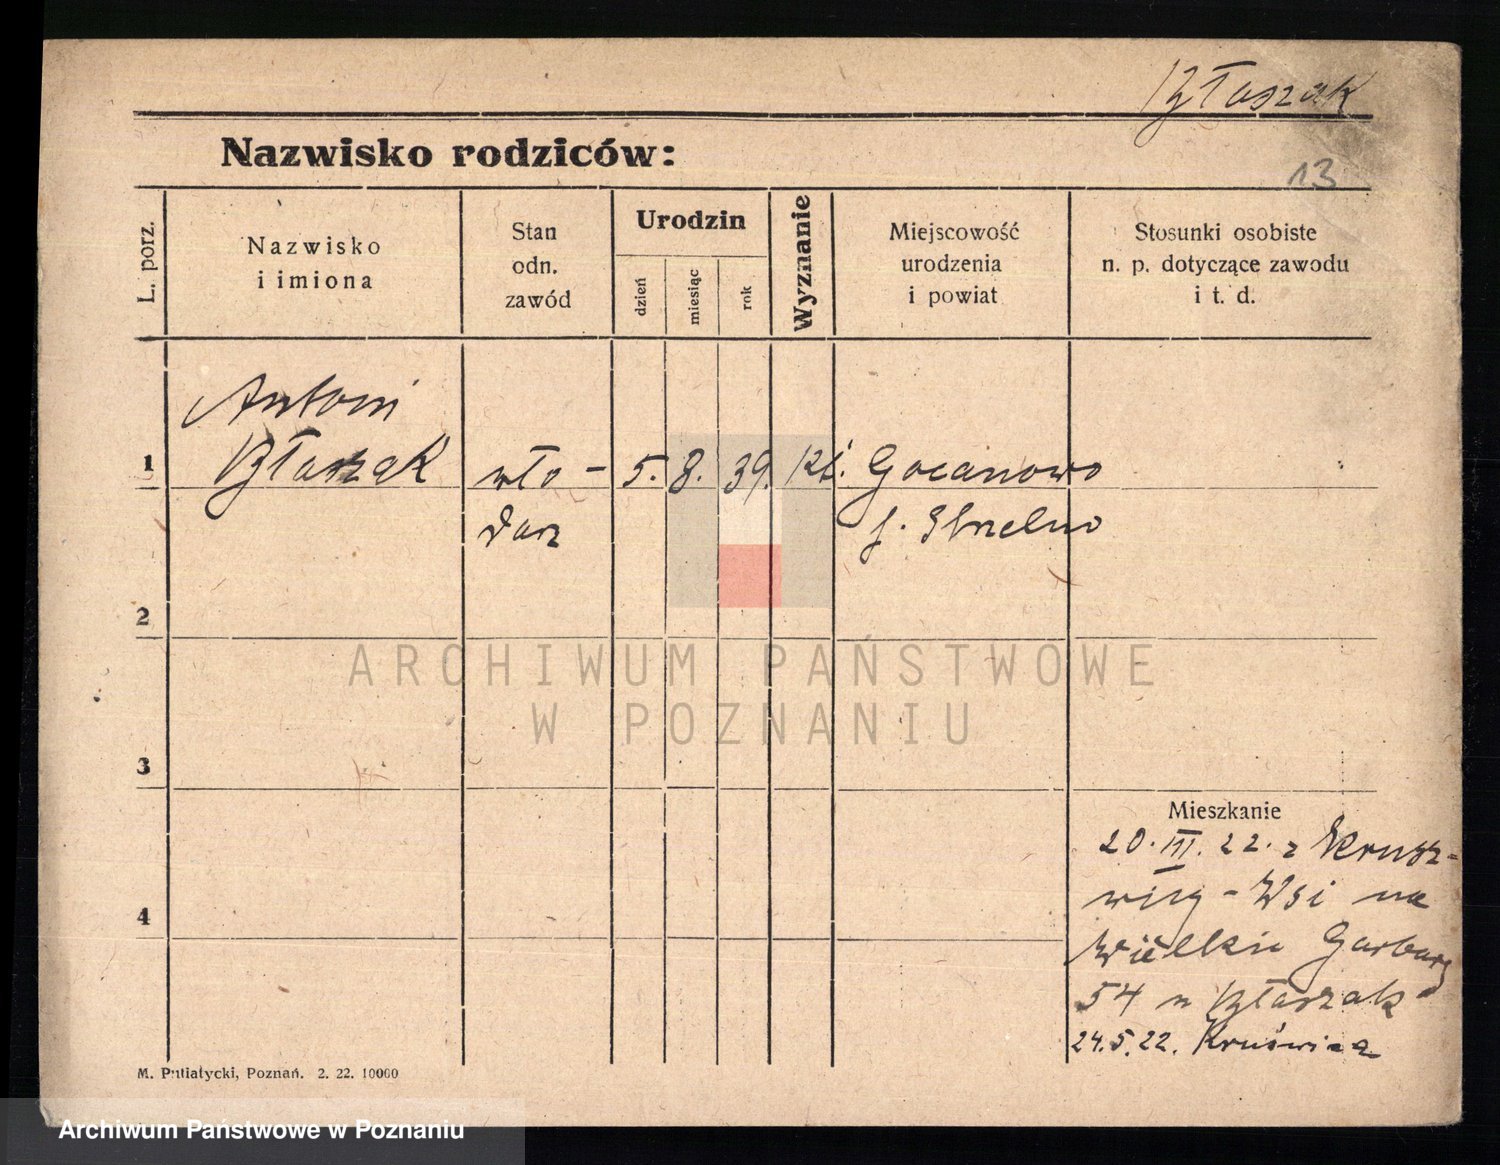 Błaszak
Nazwisko rodziców:
13
L. porz.
Nazwisko
i imiona
Stan
odn.
zawód
Urodzin
dzień
miesiąc
rok
Wyznanie
Miejscowość
urodzenia
i powiat
Stosunki osobiste
n. p. dotyczące zawodu
i t. d.
Antoni
1 Błaszak wło- 5. 8. 39. kt. Gocanowo
darz p. Strzelno
2
ARCHIWUM PAŃSTWOWE
W POZNANIU
3
Mieszkanie
20. III. 22. z Krusz-
wicy-Wsi na
4
Wielkie Garbary
54 u Błaszak
24.5.22. Kruświca
M. Putiatycki, Poznań. 2. 22. 10000
Archiwum Państwowe w Poznaniu